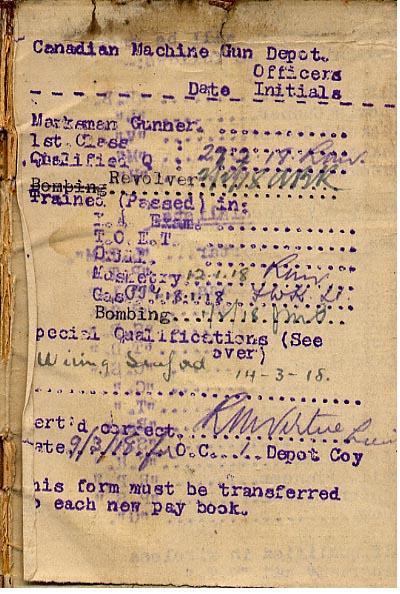 Canadian Machine Gun Depot.
Officers
Date Initials
Marksman Gunner.
1st Class :
Qualified O :
Bombing Revolver
Trained (Passed) in:
Exam.
T.O.E.T.
Musketry 12.1.18
Gas 18.1.18
Bombing
pecial Qualifications (See
over)
Wiring Seaford 14-3-18.
ert'd correct R M Virtue
ate 9/3/18 O.C. 1 Depot Coy
his form must be transferred
o each new pay book.